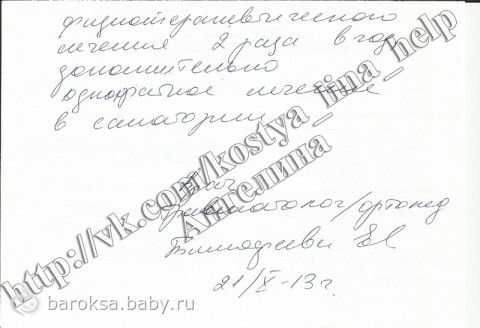 физиотерапевтического
лечения 2 раза в год
дополнительно
однократное лечение
в санатории
Врач
травматолог/ортопед
Тимофеева
21/X-13 г.
http://vk.com/kostya_lina_help
Ангелина
baroksa.baby.ru